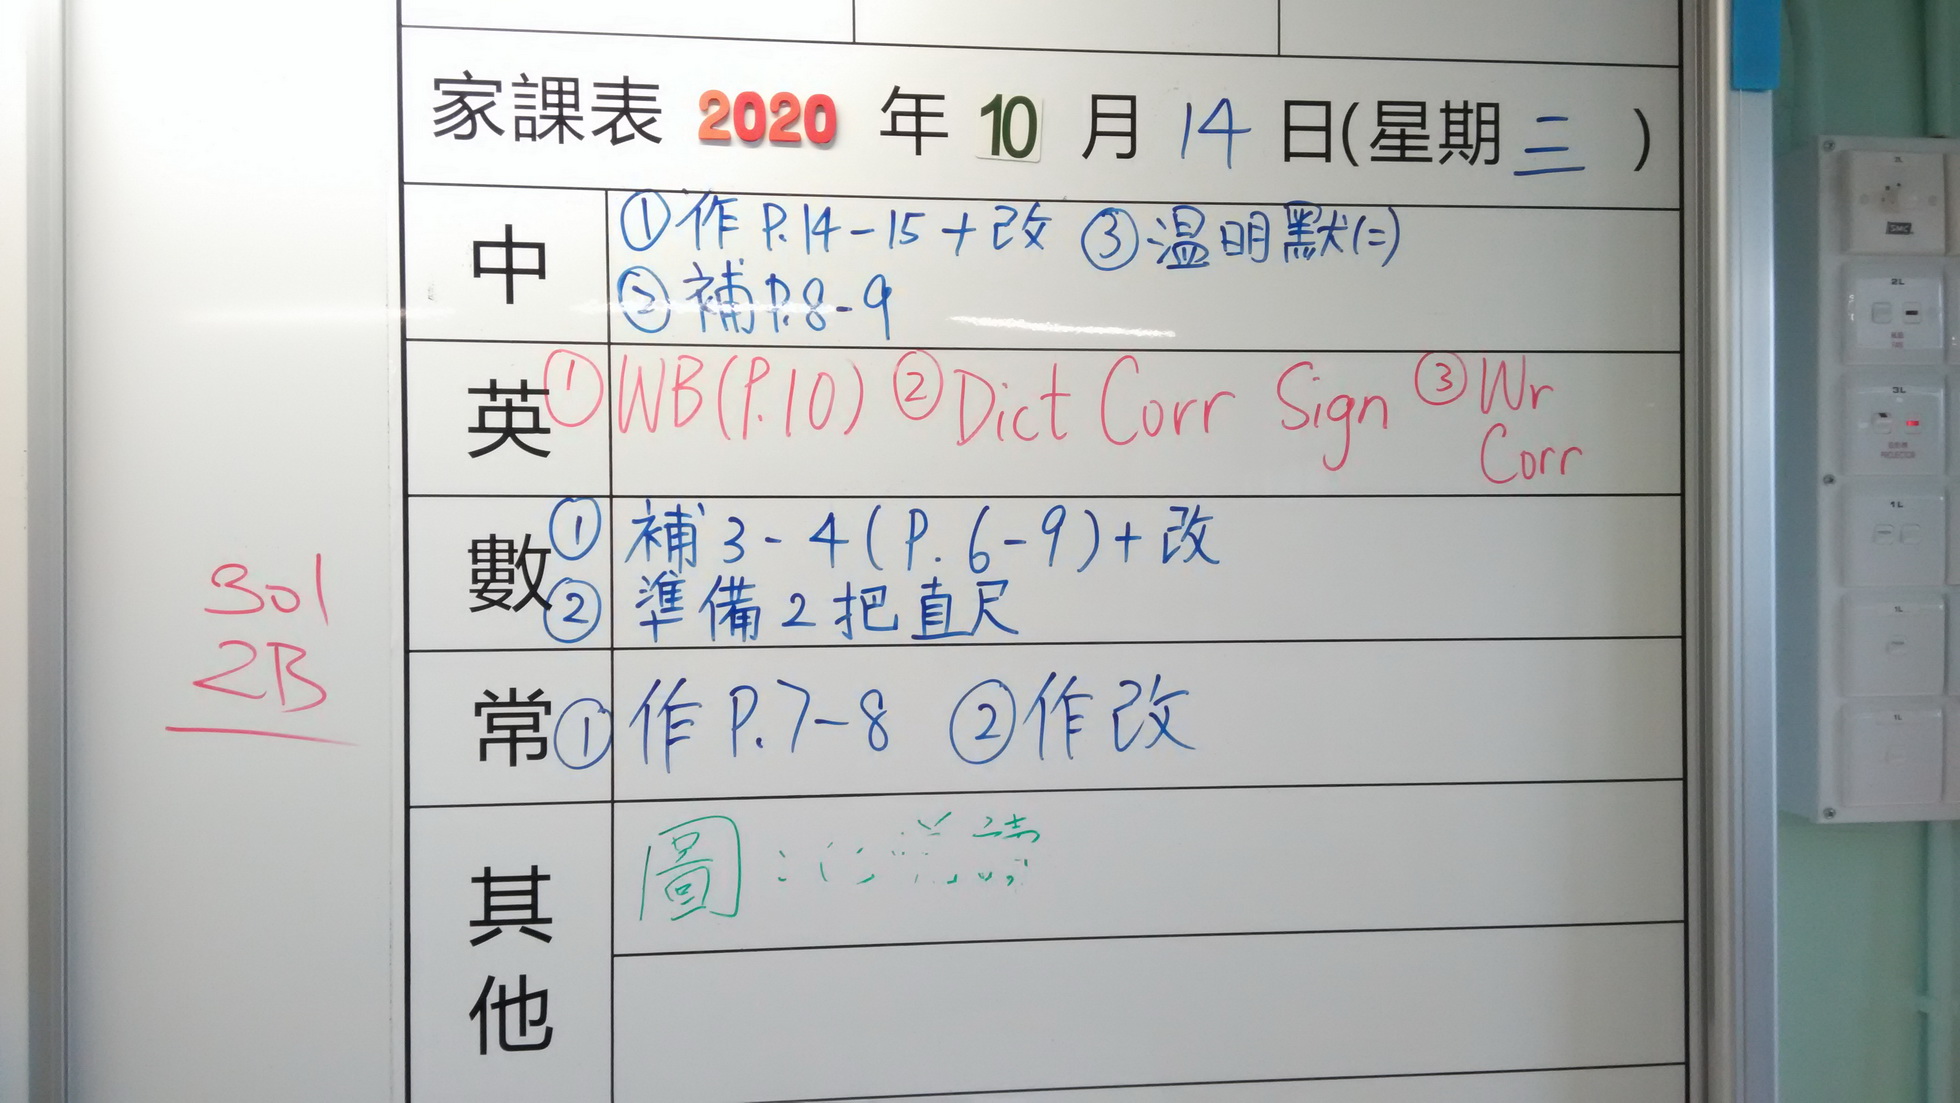 家課表 2020 年 10 月 14 日(星期 三 )
中
①作 P.14-15+改 ③溫明默(二)
②補 P.8-9
英
①WB(P.10) ②Dict Corr Sign ③Wr
Corr
數
① 補 3-4(P.6-9)+改
② 準備 2 把直尺
301
2B
常
① 作 P.7-8 ②作改
其他
圖
SMC
2L
3L
PROJECTOR
1L
1L
1L